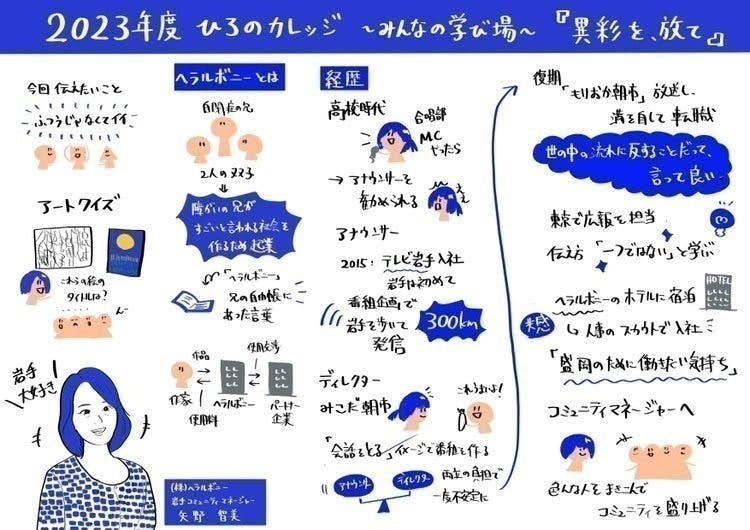 2023年度 ひろのカレッジ 〜みんなの学び場〜 『異彩を、放て』
今回伝えたいこと
ふつうじゃなくてイイ
アートクイズ
これらの絵の
タイトルは?
岩手
大好き!
ヘラルボニーとは
自閉症の兄
2人の双子
障がいの兄が
すごいと言われる社会を
作るため起業
「ヘラルボニー」
兄の自由帳に
あった言葉
作品
使用料
作家
ヘラルボニー
パートナー
企業
(株)ヘラルボニー
岩手コミュニティマネージャー
矢野 智美
経歴
高校時代
合唱部
MC
やったら
→アナウンサーを
勧められる
アナウンサー
2015:テレビ岩手入社
岩手は初めて
番組企画で
岩手を歩いて
発信
300km
ディレクター
みこだ朝市
「会話をとる」イメージで番組を作る
アナウンサー
ディレクター
両立の負担で
一度不安定に
復期
「もりおか朝市」放送し、
満を自して転職
世の中の流れに反することだって、
言って良い
東京で広報を担当
伝え方「一つではない」と学ぶ
HOTEL
ヘラルボニーのホテルに宿泊
共感
↳人事のスカウトで入社
「盛岡のために働きたい気持ち」
コミュニティマネージャーへ
色んな人をまきこんで
コミュニティを盛り上げる